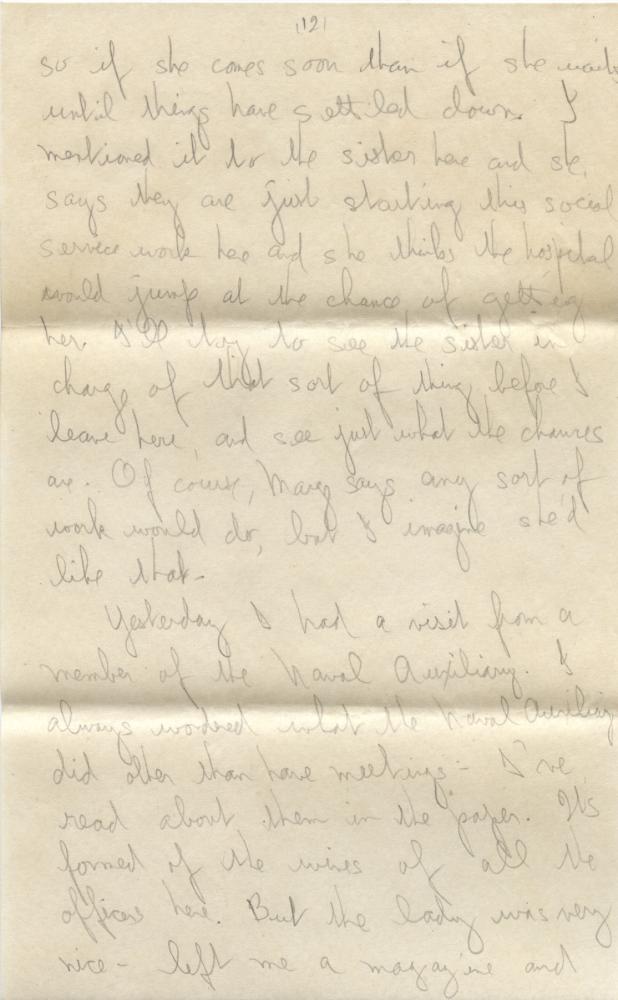 12
so if she comes soon than if she waits
until things have settled down. I
mentioned it to the sister here and she
says they are just starting this social
service work here and she thinks the hospital
would jump at the chance of getting
her. I'll try to see the sister in
charge of that sort of thing before I
leave here, and see just what the chances
are. Of course, Marg says any sort of
work would do, but I imagine she'd
like that.
Yesterday I had a visit from a
member of the Naval Auxiliary. I
always wondered what the Naval Auxiliary
did other than have meetings - I've
read about them in the paper. It's
formed of the wives of all the
officers here. But the lady was very
nice - left me a magazine and